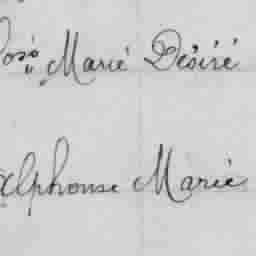 José Marie Désiré
Alphonse Marie